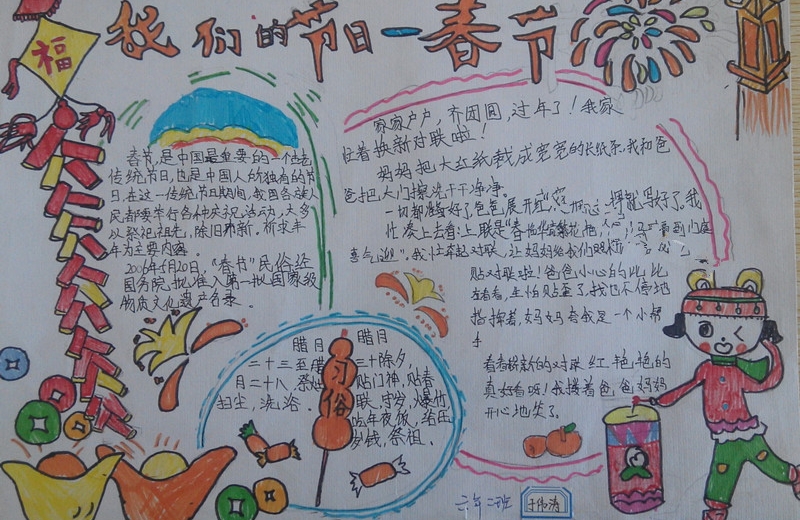 福
我们的节日一春节
春节,是中国最重要的一个
传统节日,也是中国人所独有的节
日,在这一传统节日期间,我国各族人
民都要举行各种庆祝活动,大多
以祭祀祖先,除旧布新,祈求丰
年为主要内容。
2006年5月20日,“春节”民俗经
国务院批准入第一批国家级
物质文化遗产名录。
家家户户,齐团圆,过年了!我家
忙着换新对联啦!
妈妈把大红纸裁成宽宽的长纸条,我和爸
爸把大门擦洗干干净净。
一切都准备好了,爸爸展开红
忙凑上去看:上联是“春
喜气迎”。我忙举起对联,让妈妈给我们
贴对联啦!爸爸小心的比比
看看,生怕贴歪了,我也不停地
指挥着,妈妈夸我是一个小帮
手
看着崭新的对联红艳艳的
真好看呀!我搂着爸爸妈妈
开心地笑了。
习俗
腊月
二十三至腊
月二十八
扫尘,洗浴。
腊月
三十除夕,
贴门神,贴春
联,守岁,爆竹
吃年夜饭,给压
岁钱,祭祖。
二班